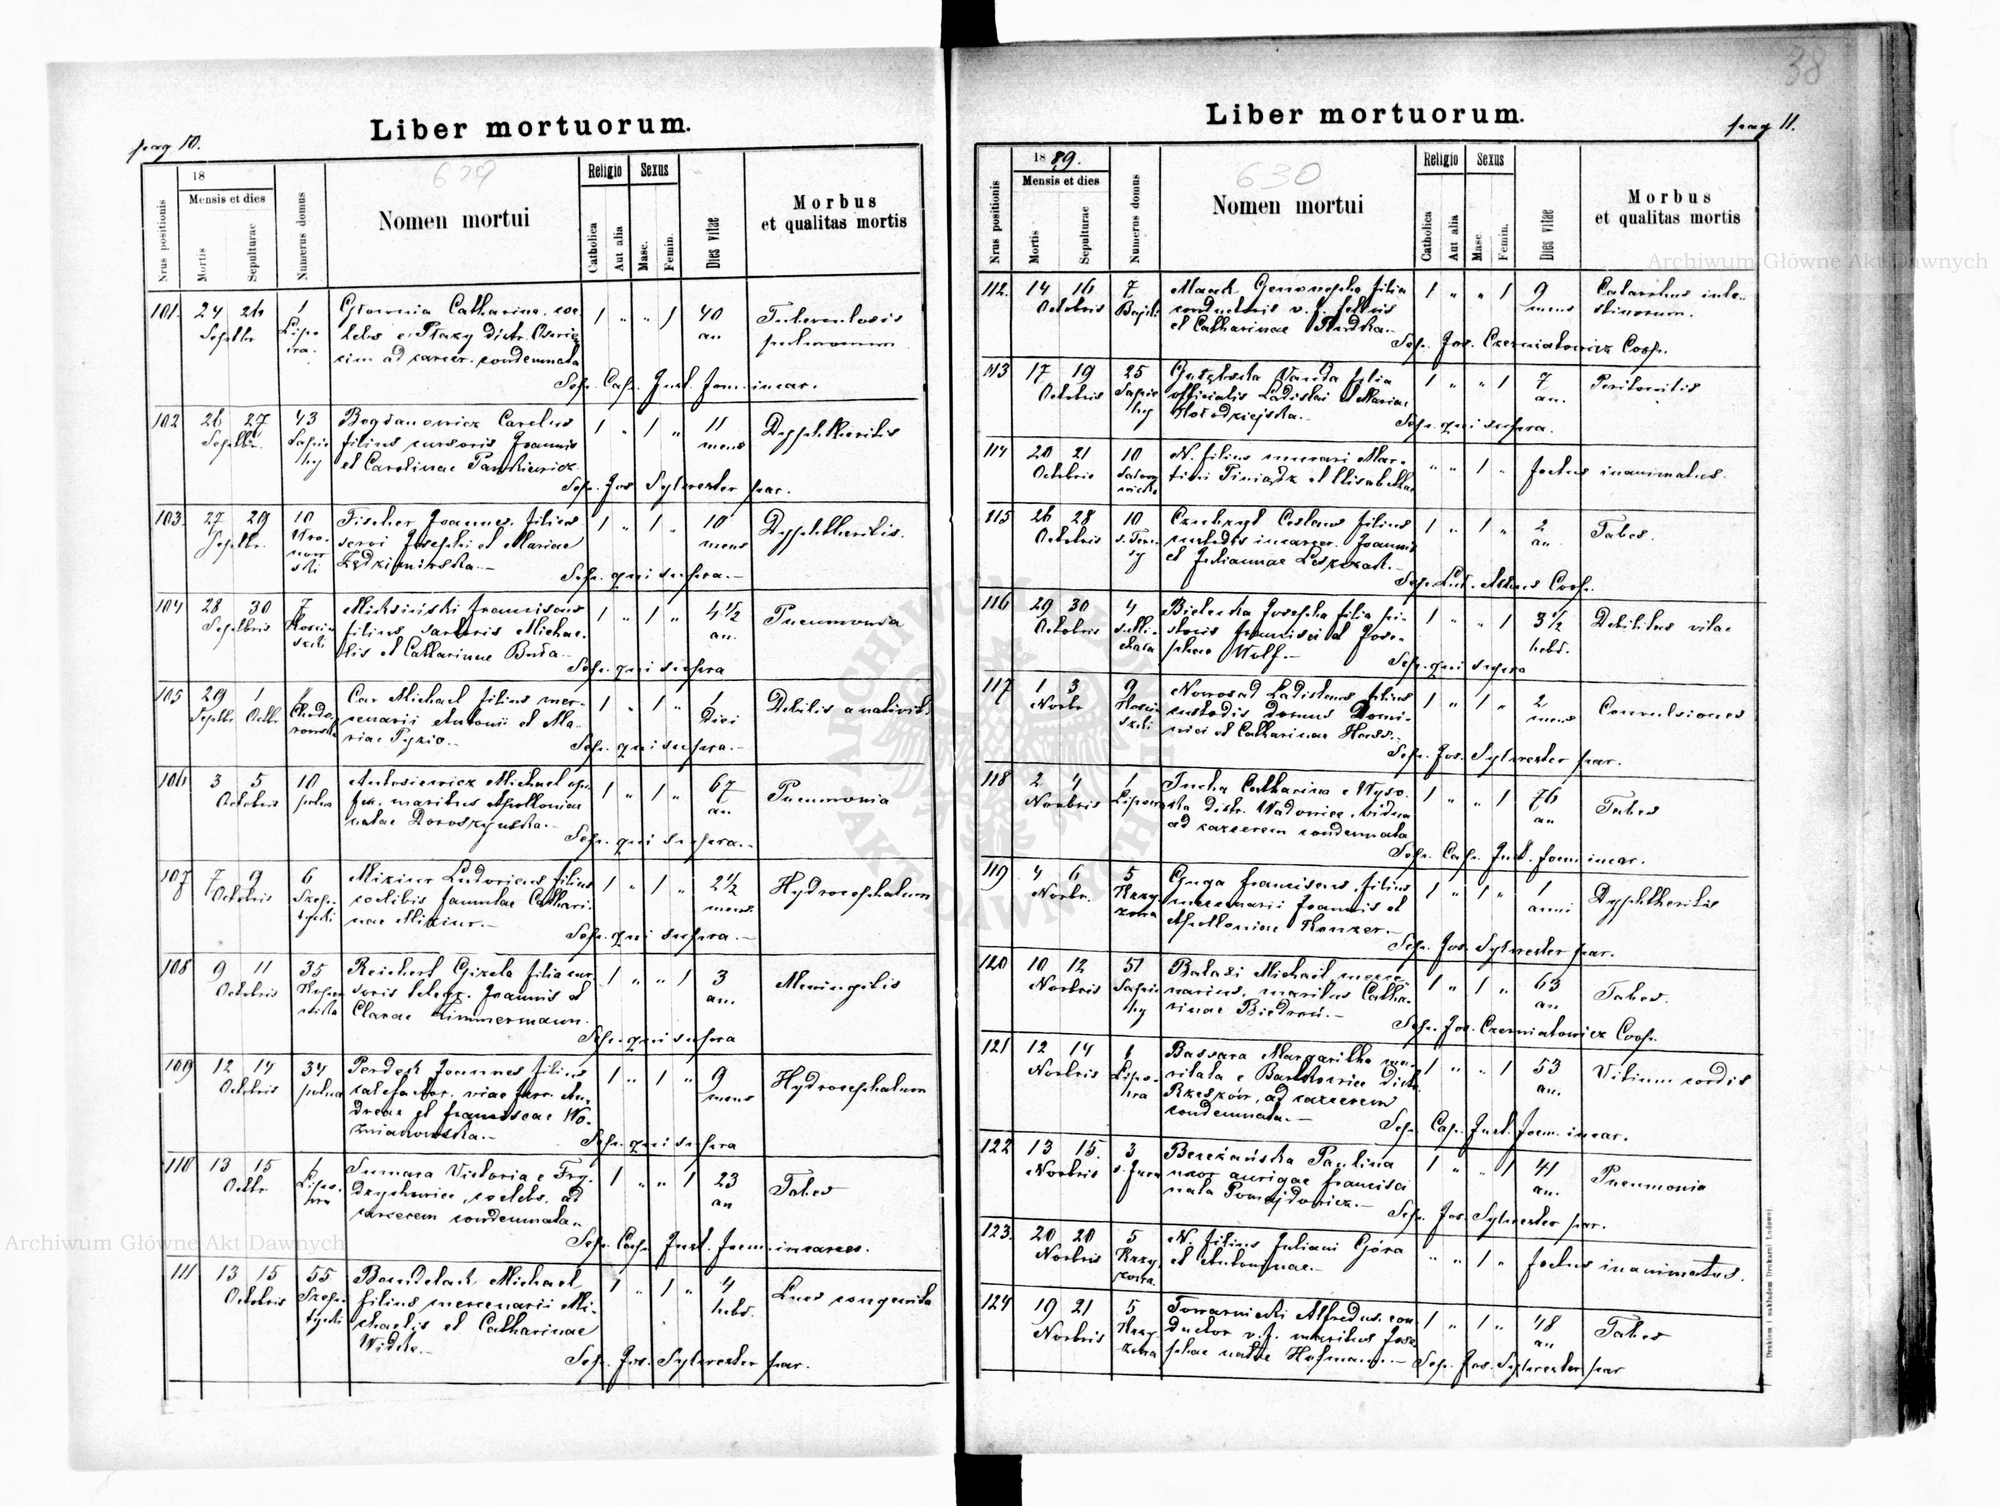 Liber mortuorum.
pag 10.
629
18
Mensis et dies
Nrus positionis
Mortis
Sepulturae
Numerus domus
Nomen mortui
Religio
Sexus
Catholica
Aut alia
Masc.
Femin.
Dies vitae
Morbus
et qualitas mortis
101 24 26 1 Catharina, coe- 1 " " 1 40 Tuberculosis
Septbr Lipo- an pulmonum
cim ad carcer. condemnata
Sep. Cap. Inst. foem. incar.
102 26 27 43 Bogdanowicz Carolus 1 " 1 " 11 Dyphtheritis
Septbr. Sapie- filius cursoris Joannis mens
hy et Carolinae Pankiewicz
Sep. Jos Sylwester par.
103. 27 29 10 Fischer Joannes filius 1 " 1 " 10 Dyphtheritis.
Septbr. servi Josephi et Mariae mens
Sep. qui supra.
104 28 30 7 Miksiński Franciscus 1 " 1 " 4 1/2 Pneumonia
Septbris filius sartoris Michae- an.
lis et Catharinae Buda.
Sep. qui supra
105 29 1 Car Michael filius mer- 1 " 1 " Debilis a nativit.
Septbr Octbr cenarii Antonii et Ma- Diei
riae Pyzio.
Sep. qui supra.
106 3 5 10 Antosiewicz Michael 1 " 1 " 67 Pneumonia
Octobris polna maritus Apolloniae an
natae Doroszyńska.
Sep. qui supra.
107 7 9 6 Miziur Ludovicus filius 1 " 1 " 2 1/2 Hydrocephalum
Octobris Szep- coelibis famulae Cathari- mens
tycki nae Miziur.
Sep. qui supra.
108 9 11 35 Reichert Gizela filia cur- 1 " " 1 3 Meningitis
Octobris soris telegr. Joannis et an.
Clarae Zimmermann.
Sep. qui supra
109 12 14 34 Joannes filius 1 " 1 " 9 Hydrocephalum
Octobris polna calefactor. viae ferr. An- mens
dreae et Franciscae Wo-
źniakowska.
Sep. qui supra
110 13 15 1 Sumara Victoria e Fry- 1 " " 1 23 Tabes
Octbr. Lipo- drychowice, coelebs, ad an
wa carcerem condemnata.
Sep. Cap. Inst. foem. incarcer.
111 13 15 55 Michael 1 " 1 " 4 Lues congenita
Octobris Szep- filius mercenarii Mi- hebd.
tycki chaelis et Catharinae
Sep. Jos. Sylwester par.
Liber mortuorum.
38
pag 11.
630
1889.
Mensis et dies
Nrus positionis
Mortis
Sepulturae
Numerus domus
Nomen mortui
Religio
Sexus
Catholica
Aut alia
Masc.
Femin.
Dies vitae
Morbus
et qualitas mortis
112. 14 16 7 Maack Genovepha filia 1 " " 1 9 Catarrhus inte-
Octobris conductoris v. f. mens stinorum.
et Catharinae Rudka.
Sep. Jos. Czerniatowicz Coop.
113 17 19 25 Vanda filia 1 " " 1 7 Peritonitis
Octobris Sapie- officialis Ladislai et Mariae an.
hy Kołodziejska.
Sep. qui supra.
114 20 21 10 N. filius murari Mar- " " 1 " foetus inanimatus.
Octobris tini Pieniądz et Elisabethae
115 26 28 10 Ceslaus filius 1 " 1 " 2 Tabes.
Octobris custodis incarcer. Joannis an.
et Juliannae Leszczak.
Sep. Lud. Coop.
116 29 30 4 Bielecka Josepha filia pi- 1 " " 1 3 1/2 Debilitas vitae
Octobris storis Francisci et Jose- hebd.
phae Wolf.
Sep. qui supra
117 1 3 9 Nowosad Ladislaus filius 1 " 1 " 2 Convulsiones
Novbr custodis domus Domi- mens
nici et Catharinae
Sep. Jos. Sylwester par.
118 2 4 1 Tucha Catharina e Wyso- 1 " " 1 76 Tabes
Novbris Lipowa ka distr. Wadowice, vidua an
ad carcerem condemnata
Sep. Cap. Inst. foem. incar.
119 4 6 5 Franciscus filius 1 " 1 " 1 Dyphtheritis
Novbr. Krzy- mercenarii Joannis et anni
żowa Apolloniae Konzer.
Sep. Jos. Sylwester par.
120 10 12 51 Michael merce- 1 " 1 " 63 Tabes.
Novbris Sapie- narius, maritus Catha- an
hy rinae Biedroń.
Sep. Jos. Czerniatowicz Coop.
121 12 14 1 Bassara Margaritha ma- 1 " " 1 53 Vitium cordis
Novbris Lipo- ritata e distr. an.
wa Rzeszów, ad carcerem
condemnata.
Sep. Cap. Inst. foem. incar.
122 13 15. 3 Bereżańska Paulina 1 " " 1 41 Pneumonia
Novbris s. Jura uxor aurigae Francisci an.
nata Pomajdowicz.
Sep. Jos. Sylwester par.
123. 20 20 5 N. filius Juliani Góra " " 1 " foetus inanimatus.
Novbris Krzy- et Antoninae.
żowa.
124 19 21 5 Towarnicki Alfredus con- 1 " 1 " 48 Tabes
Novbris Krzy- ductor v. f. maritus Jose- an
żowa phae natae Hofmann. Sep. Jos. Sylwester par
Drukiem i nakładem Drukarni Ludowej.
Archiwum Główne Akt Dawnych
Archiwum Główne Akt Dawnych
ARCHIWUM GŁÓWNE AKT DAWNYCH